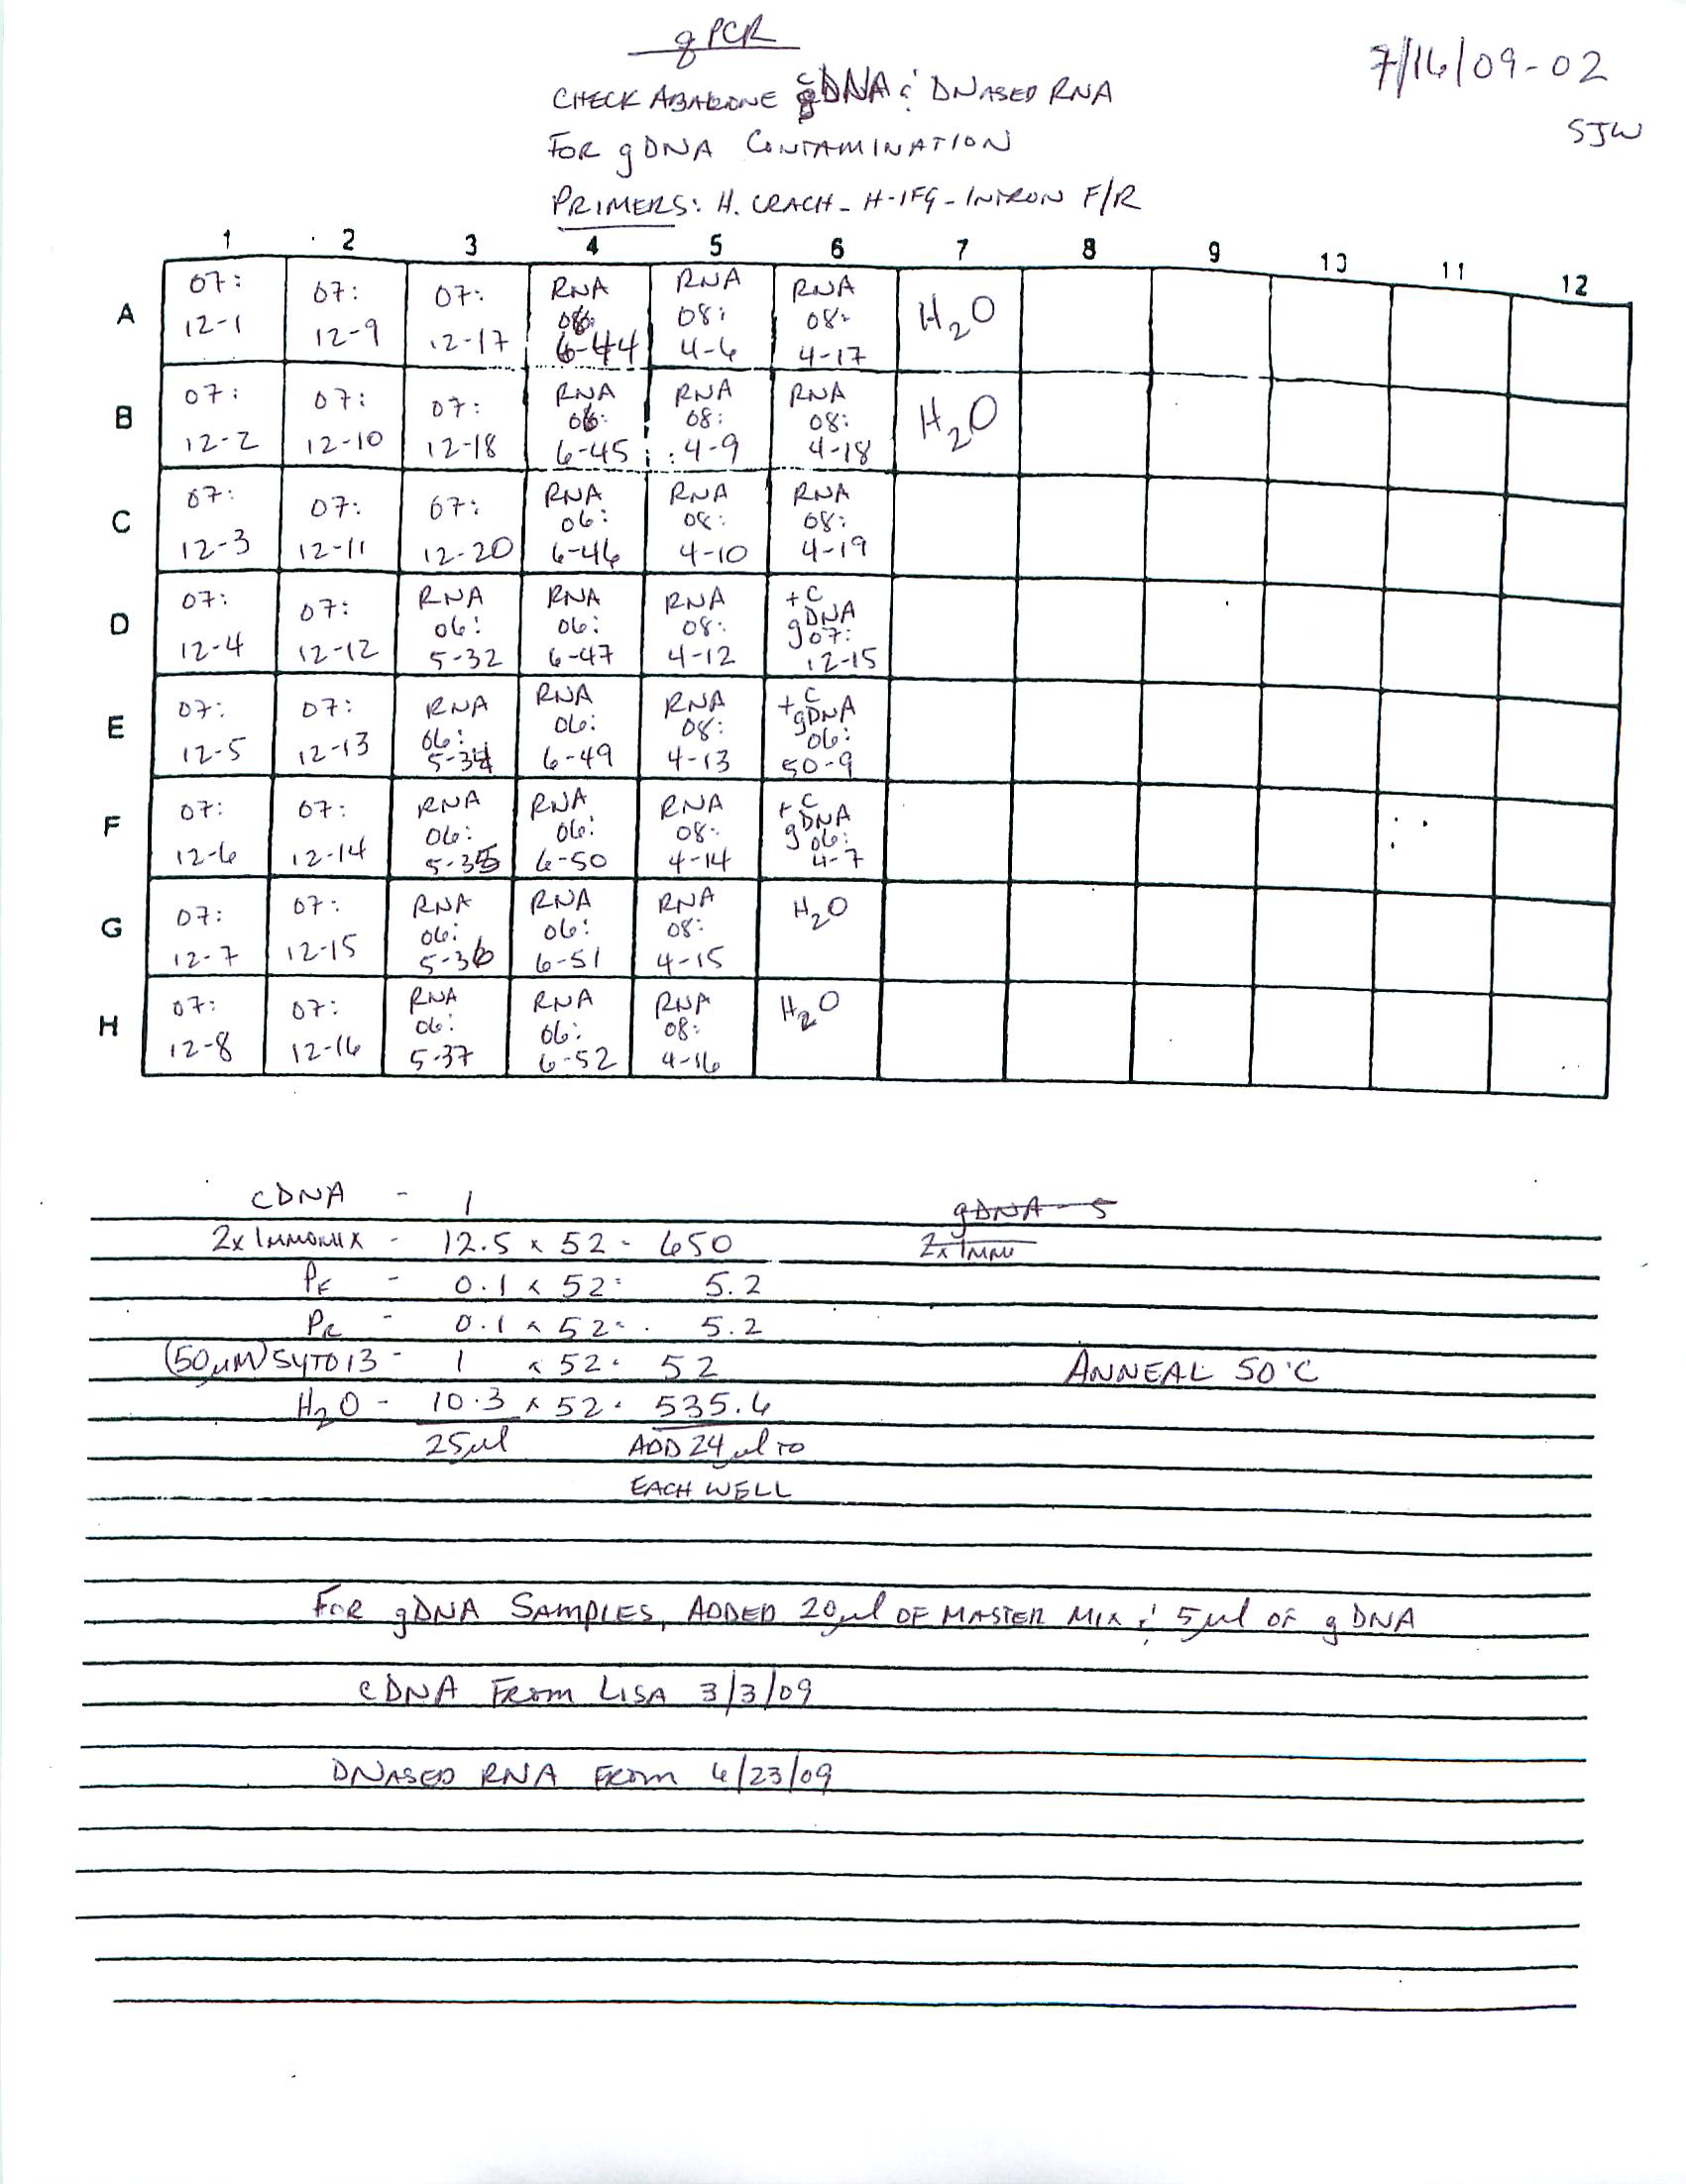 qPCR
7/16/09-02
CHECK ABALONE cDNA & DNASED RNA
SJW
FOR gDNA CONTAMINATION
PRIMERS: H. CRACH - H-1FG - INTRON F/R
1 2 3 4 5 6 7 8 9 10 11 12
A
07: 12-1
07: 12-9
07: 12-17
RNA 06: 6-44
RNA 08: 4-6
RNA 08: 4-17
H2O
B
07: 12-2
07: 12-10
07: 12-18
RNA 06: 6-45
RNA 08: 4-9
RNA 08: 4-18
H2O
C
07: 12-3
07: 12-11
07: 12-20
RNA 06: 6-46
RNA 08: 4-10
RNA 08: 4-19
D
07: 12-4
07: 12-12
RNA 06: 5-32
RNA 06: 6-47
RNA 08: 4-12
+C gDNA 07: 12-15
E
07: 12-5
07: 12-13
RNA 06: 5-34
RNA 06: 6-49
RNA 08: 4-13
+C gDNA 06: 50-9
F
07: 12-6
07: 12-14
RNA 06: 5-35
RNA 06: 6-50
RNA 08: 4-14
+C gDNA 06: 4-7
G
07: 12-7
07: 12-15
RNA 06: 5-36
RNA 06: 6-51
RNA 08: 4-15
H2O
H
07: 12-8
07: 12-16
RNA 06: 5-37
RNA 06: 6-52
RNA 08: 4-16
H2O
cDNA - 1
gDNA - 5
2x IMMOMIX - 12.5 x 52 = 650
2x IMM
PF - 0.1 x 52 = 5.2
PR - 0.1 x 52 = 5.2
(50µM) SYTO 13 - 1 x 52 = 52
ANNEAL 50°C
H2O - 10.3 x 52 = 535.6
25µl ADD 24µl TO
EACH WELL
FOR gDNA SAMPLES, ADDED 20µl OF MASTER MIX & 5µl OF gDNA
cDNA FROM LISA 3/3/09
DNASED RNA FROM 4/23/09